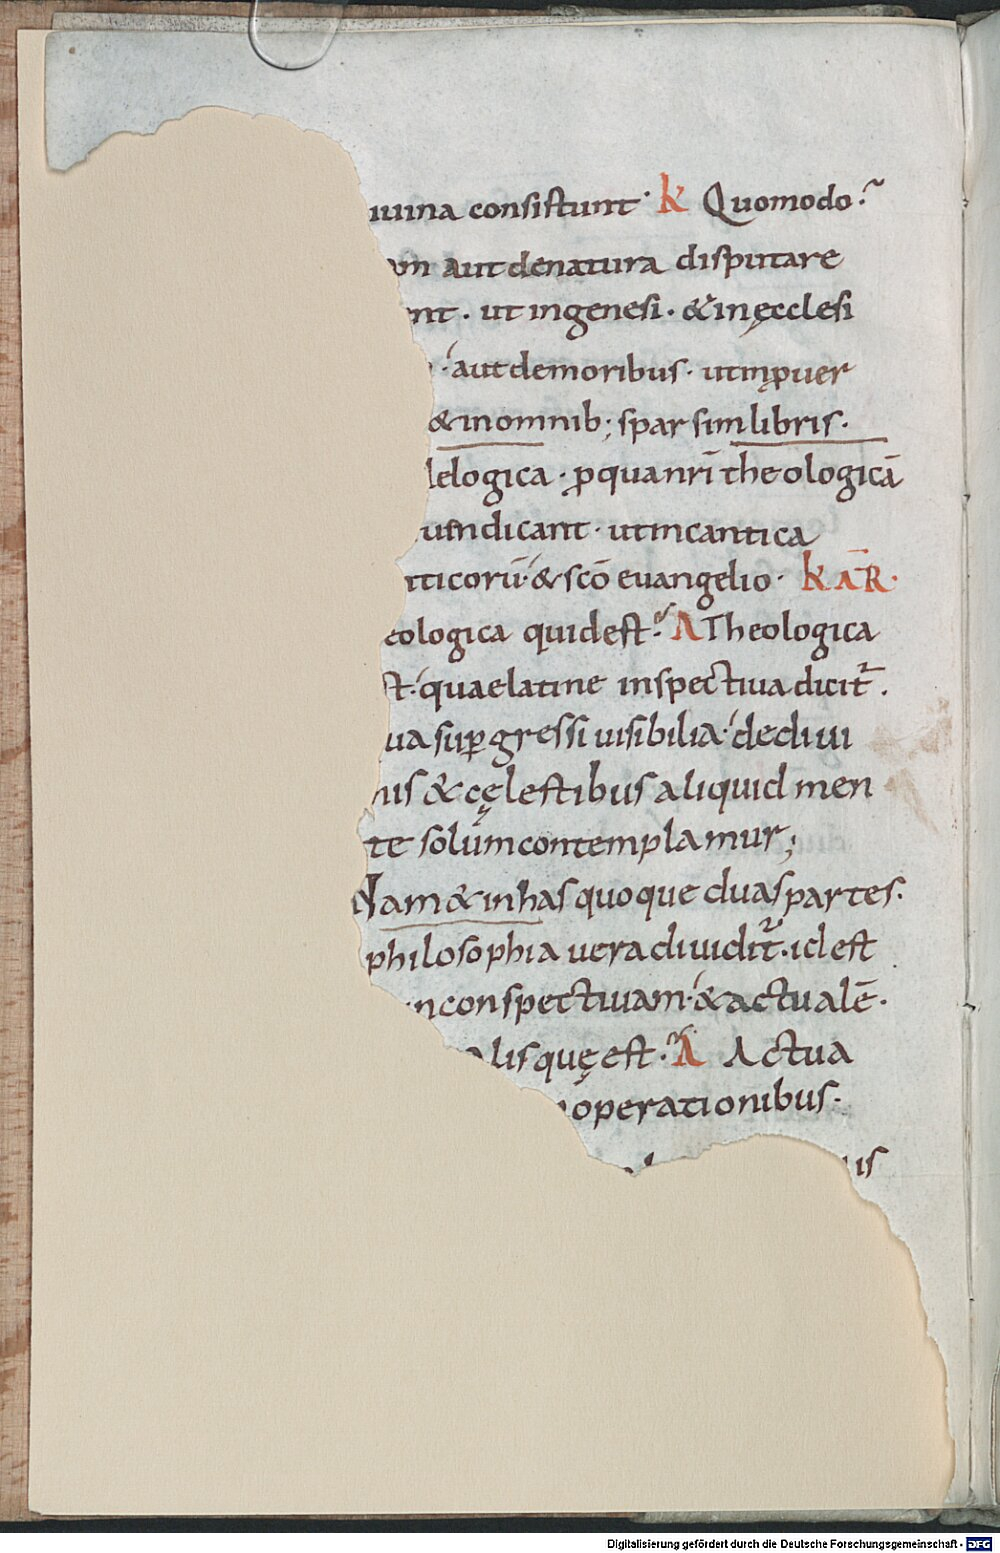 iuina consistunt · k Quomodo ·
am aut de natura disputare
ent · ut in genesi · & in ęcclesi
· aut de moribus · ut in ꝓuer
& in omnib; sparsim libris ·
de logica · ꝓ qua nr̄i theologicā
dicant · ut in cantica
ticorū · & sc̄o euangelio · k A R ·
eologica quid est · A Theologica
st · quae latine inspectiua dicit᷑ .
ua suꝑgressi uisibilia · de diui
nis & cęlestibus aliquid men
te solum contemplamur ;
Nam & in has quoque duas partes .
philosophia uera diuidit᷑ · id est
in conspectiuam · & actualē ·
lis quę est · A Actua
operationibus ·
us
Digitalisierung gefördert durch die Deutsche Forschungsgemeinschaft - DFG